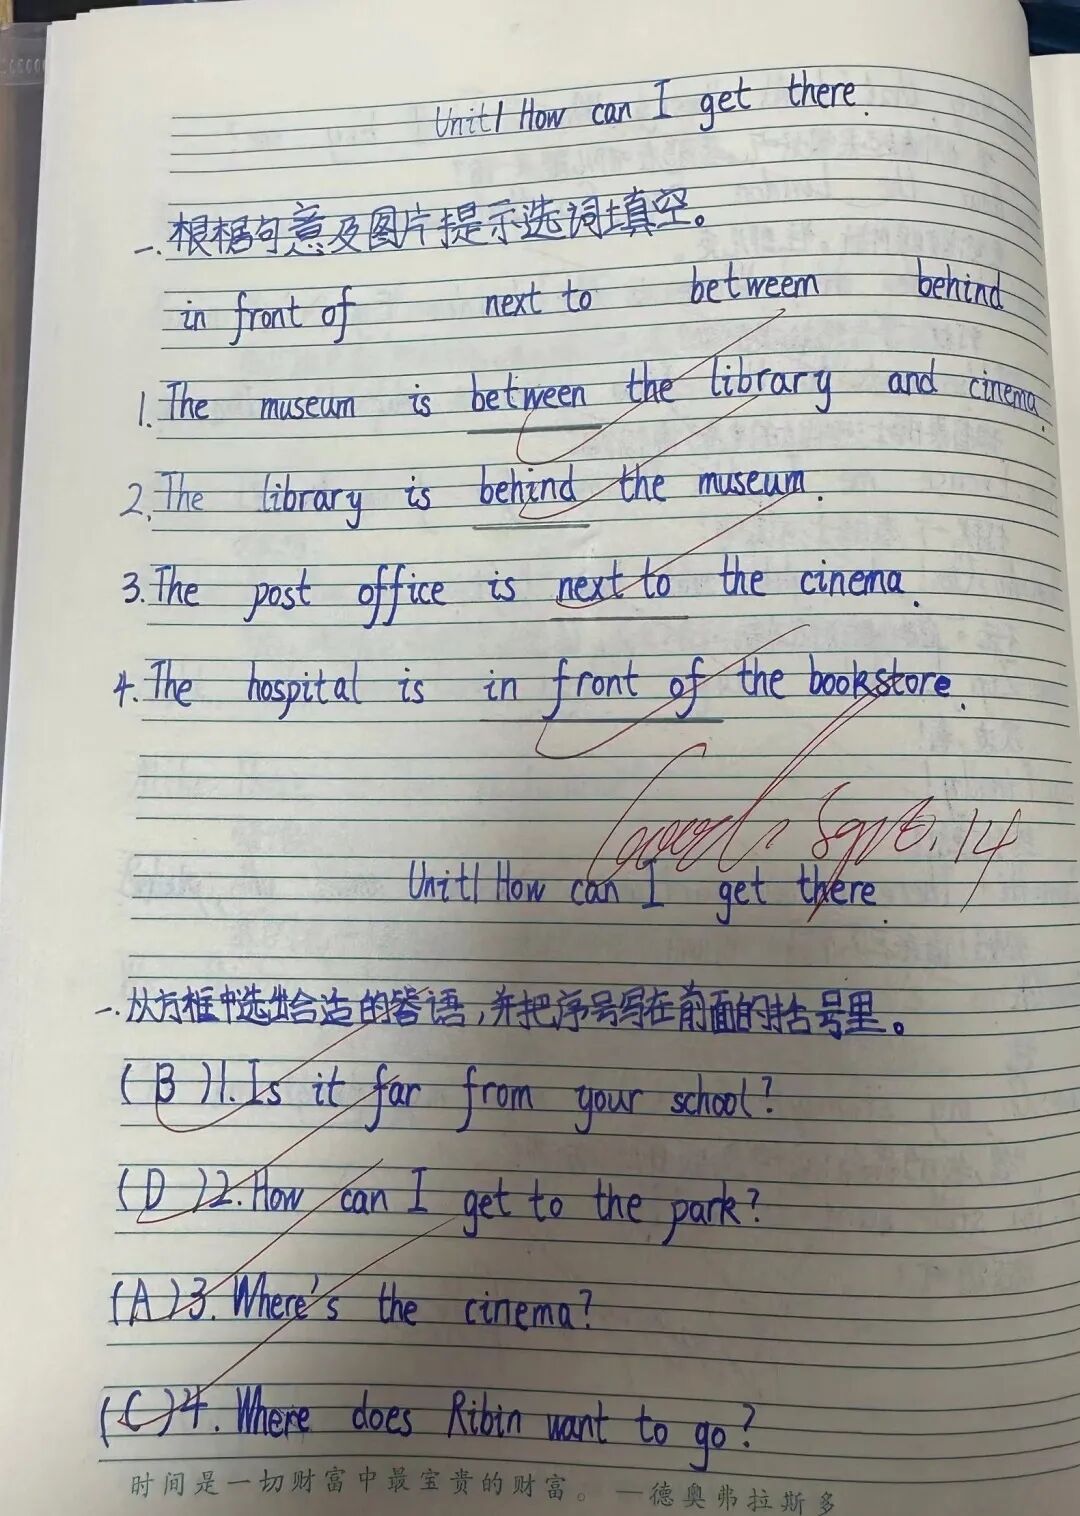 Unit1 How can I get there.
一.根据句意及图片提示选词填空。
in front of next to betweem behind
1.The museum is between the library and cinema.
2.The library is behind the museum.
3.The post office is next to the cinema.
4.The hospital is in front of the bookstore.
Good! Sep. 14
Unit1 How can I get there.
一.从方框中选出合适的答语,并把序号写在前面的括号里。
(B)1.Is it far from your school?
(D)2.How can I get to the park?
(A)3.Where's the cinema?
(C)4.Where does Ribin want to go?
时间是一切财富中最宝贵的财富。 —德奥弗拉斯多